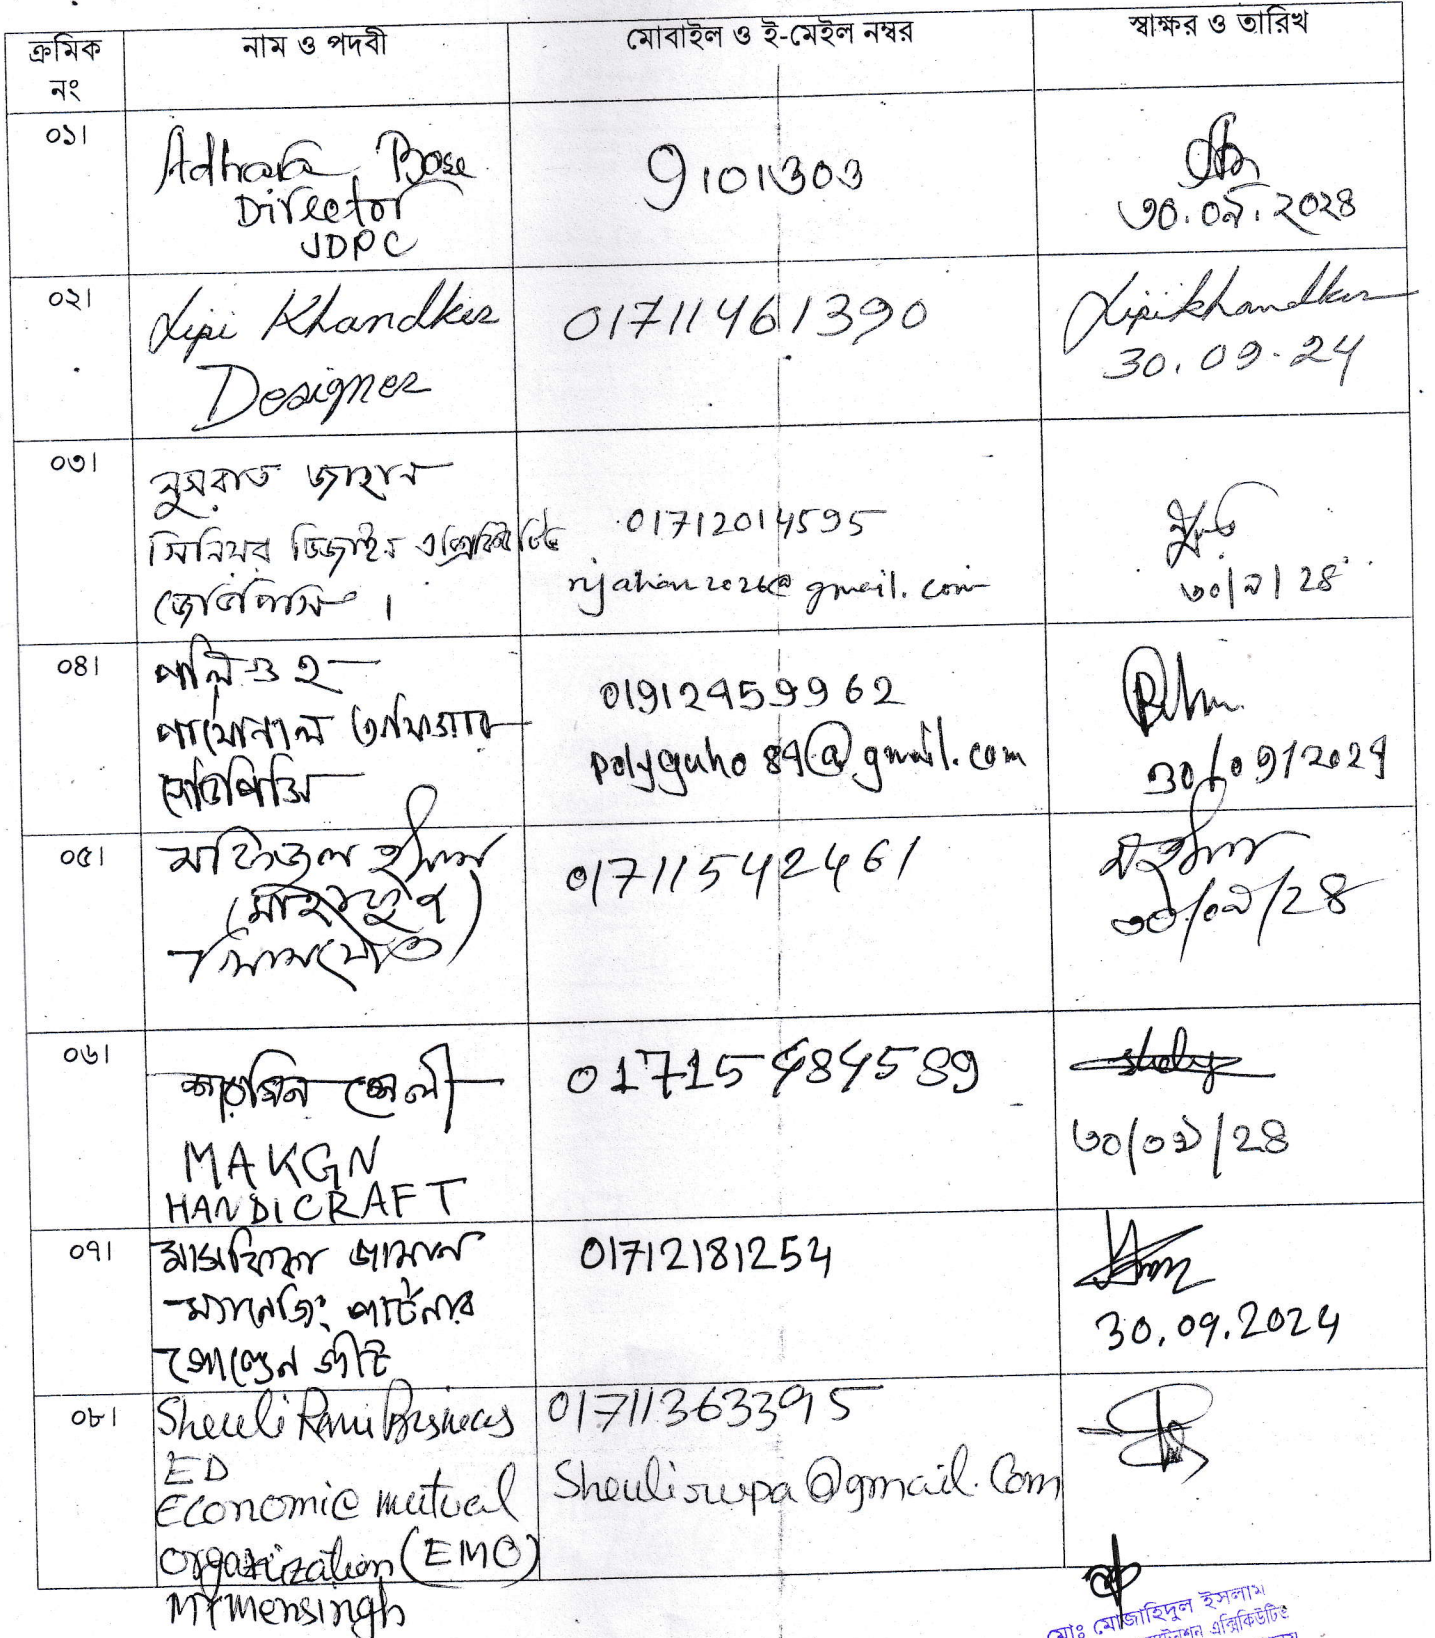 ক্রমিক নং	নাম ও পদবী	মোবাইল ও ই-মেইল নম্বর	স্বাক্ষর ও তারিখ
০১।
Adhara Bose
Director
JDPC
9101303
৩০.০৯.২০২৪
০২।
Lipi Khandker
Designer
01711461390
Lipi khandker
30.09.24
০৩।
নুসরাত জাহান
সিনিয়র ডিজাইন এক্সিকিউটিভ
জেডিপিসি।
01712014595
njahan2026@gmail.com
৩০/৯/২৪
০৪।
পলি গুহ
জেডিপিসি
01912459962
polyguho84@gmail.com
30/09/2024
০৫।
01711542461
৩০/০৯/২৪
০৬।
শারমিন শেলী
MAKGN
HANDICRAFT
01715484589
shely
৩০/০৯/২৪
০৭।
জামান
ম্যানেজিং পার্টনার
গোল্ডেন
01712181254
30.09.2024
০৮।
Sheuli Rani
ED
Economic mutual
organization (EMO)
Mymensingh
01711363395
Sheulirupa@gmail.com
মোঃ মোজাহিদুল ইসলাম
এক্সিকিউটিভ